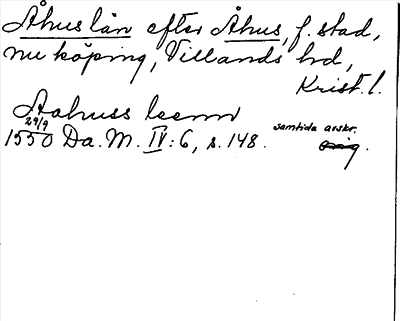 Åhus län efter Åhus, f. stad,
nu köping, Villands hd,
Krist. l.
Aahuss leenn
29/9
1550 Da. M. IV: 6, s. 148. samtida avskr.
orig.